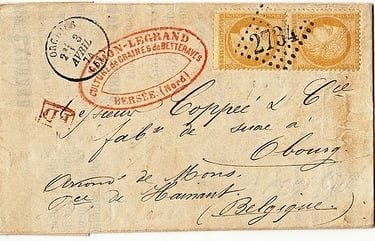 ORCHIES
2E 3
AVRIL
74
-LEGRAND
CULTURE de GRAINES de BETTERAVES
BERSÉE (Nord)
2734
PD
Messieurs Coppée & Cie
fabts de sucre à
Obourg
Arrondt de Mons,
Pce de Hainaut
(Belgique)